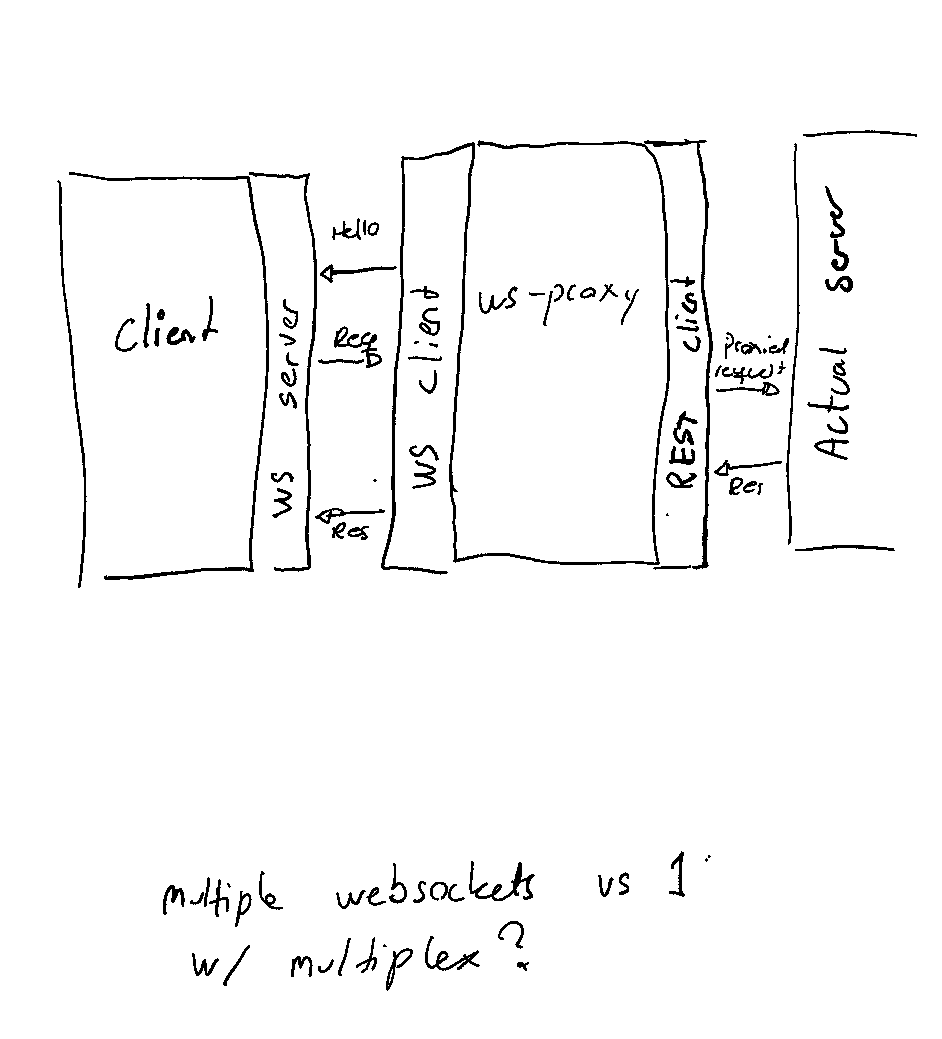 Client
WS server
Hello
Req
Res
WS client
ws-proxy
REST client
Proxied
request
Res
Actual server
multiple websockets vs 1
w/ multiplex?